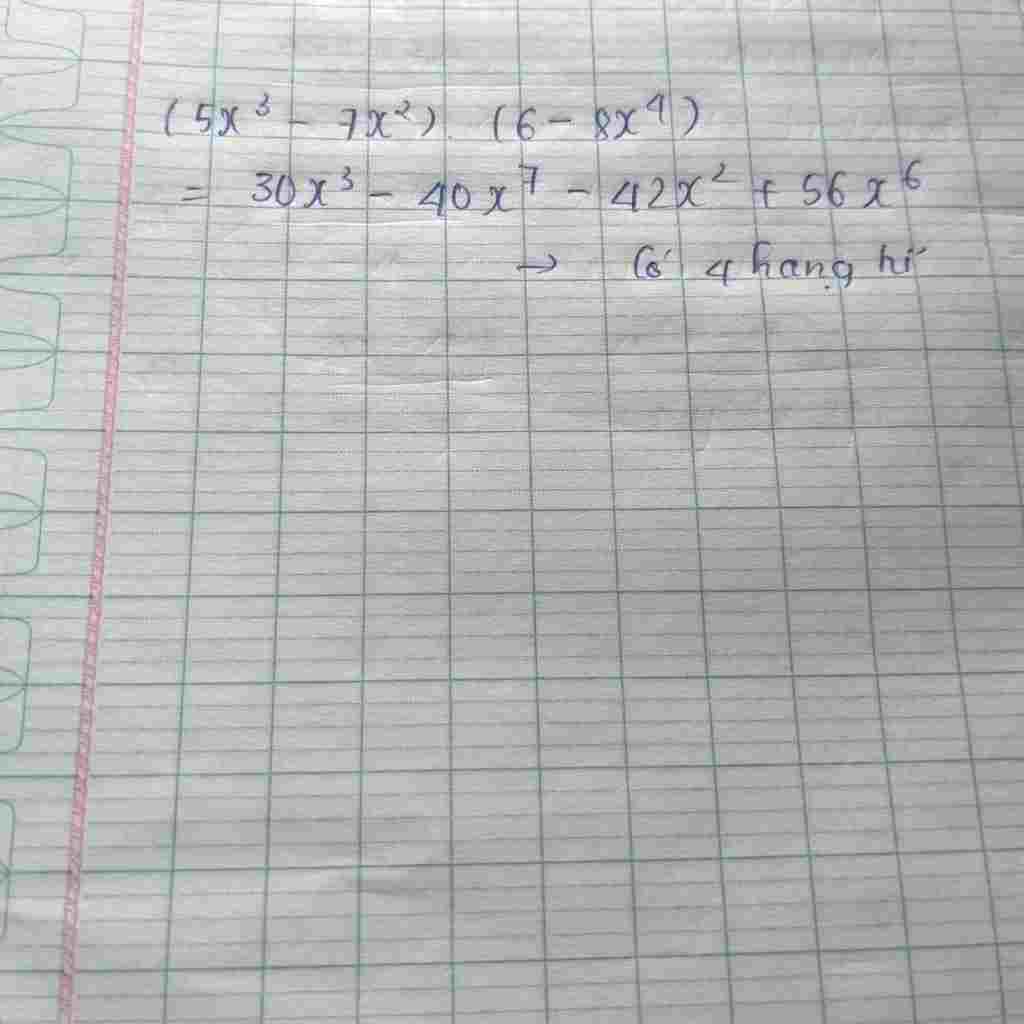 (5x³ - 7x²). (6 - 8x⁴)
= 30x³ - 40x⁷ - 42x² + 56x⁶
→ Có 4 hạng tử